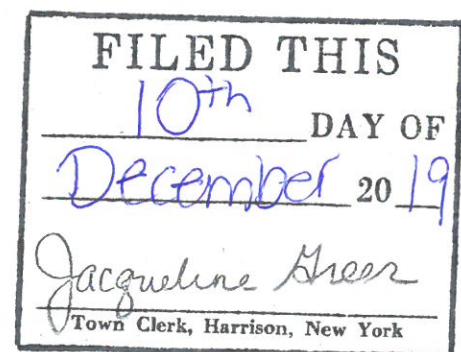 FILED THIS
10th DAY OF
December 20 19
Jacqueline Greer
Town Clerk, Harrison, New York